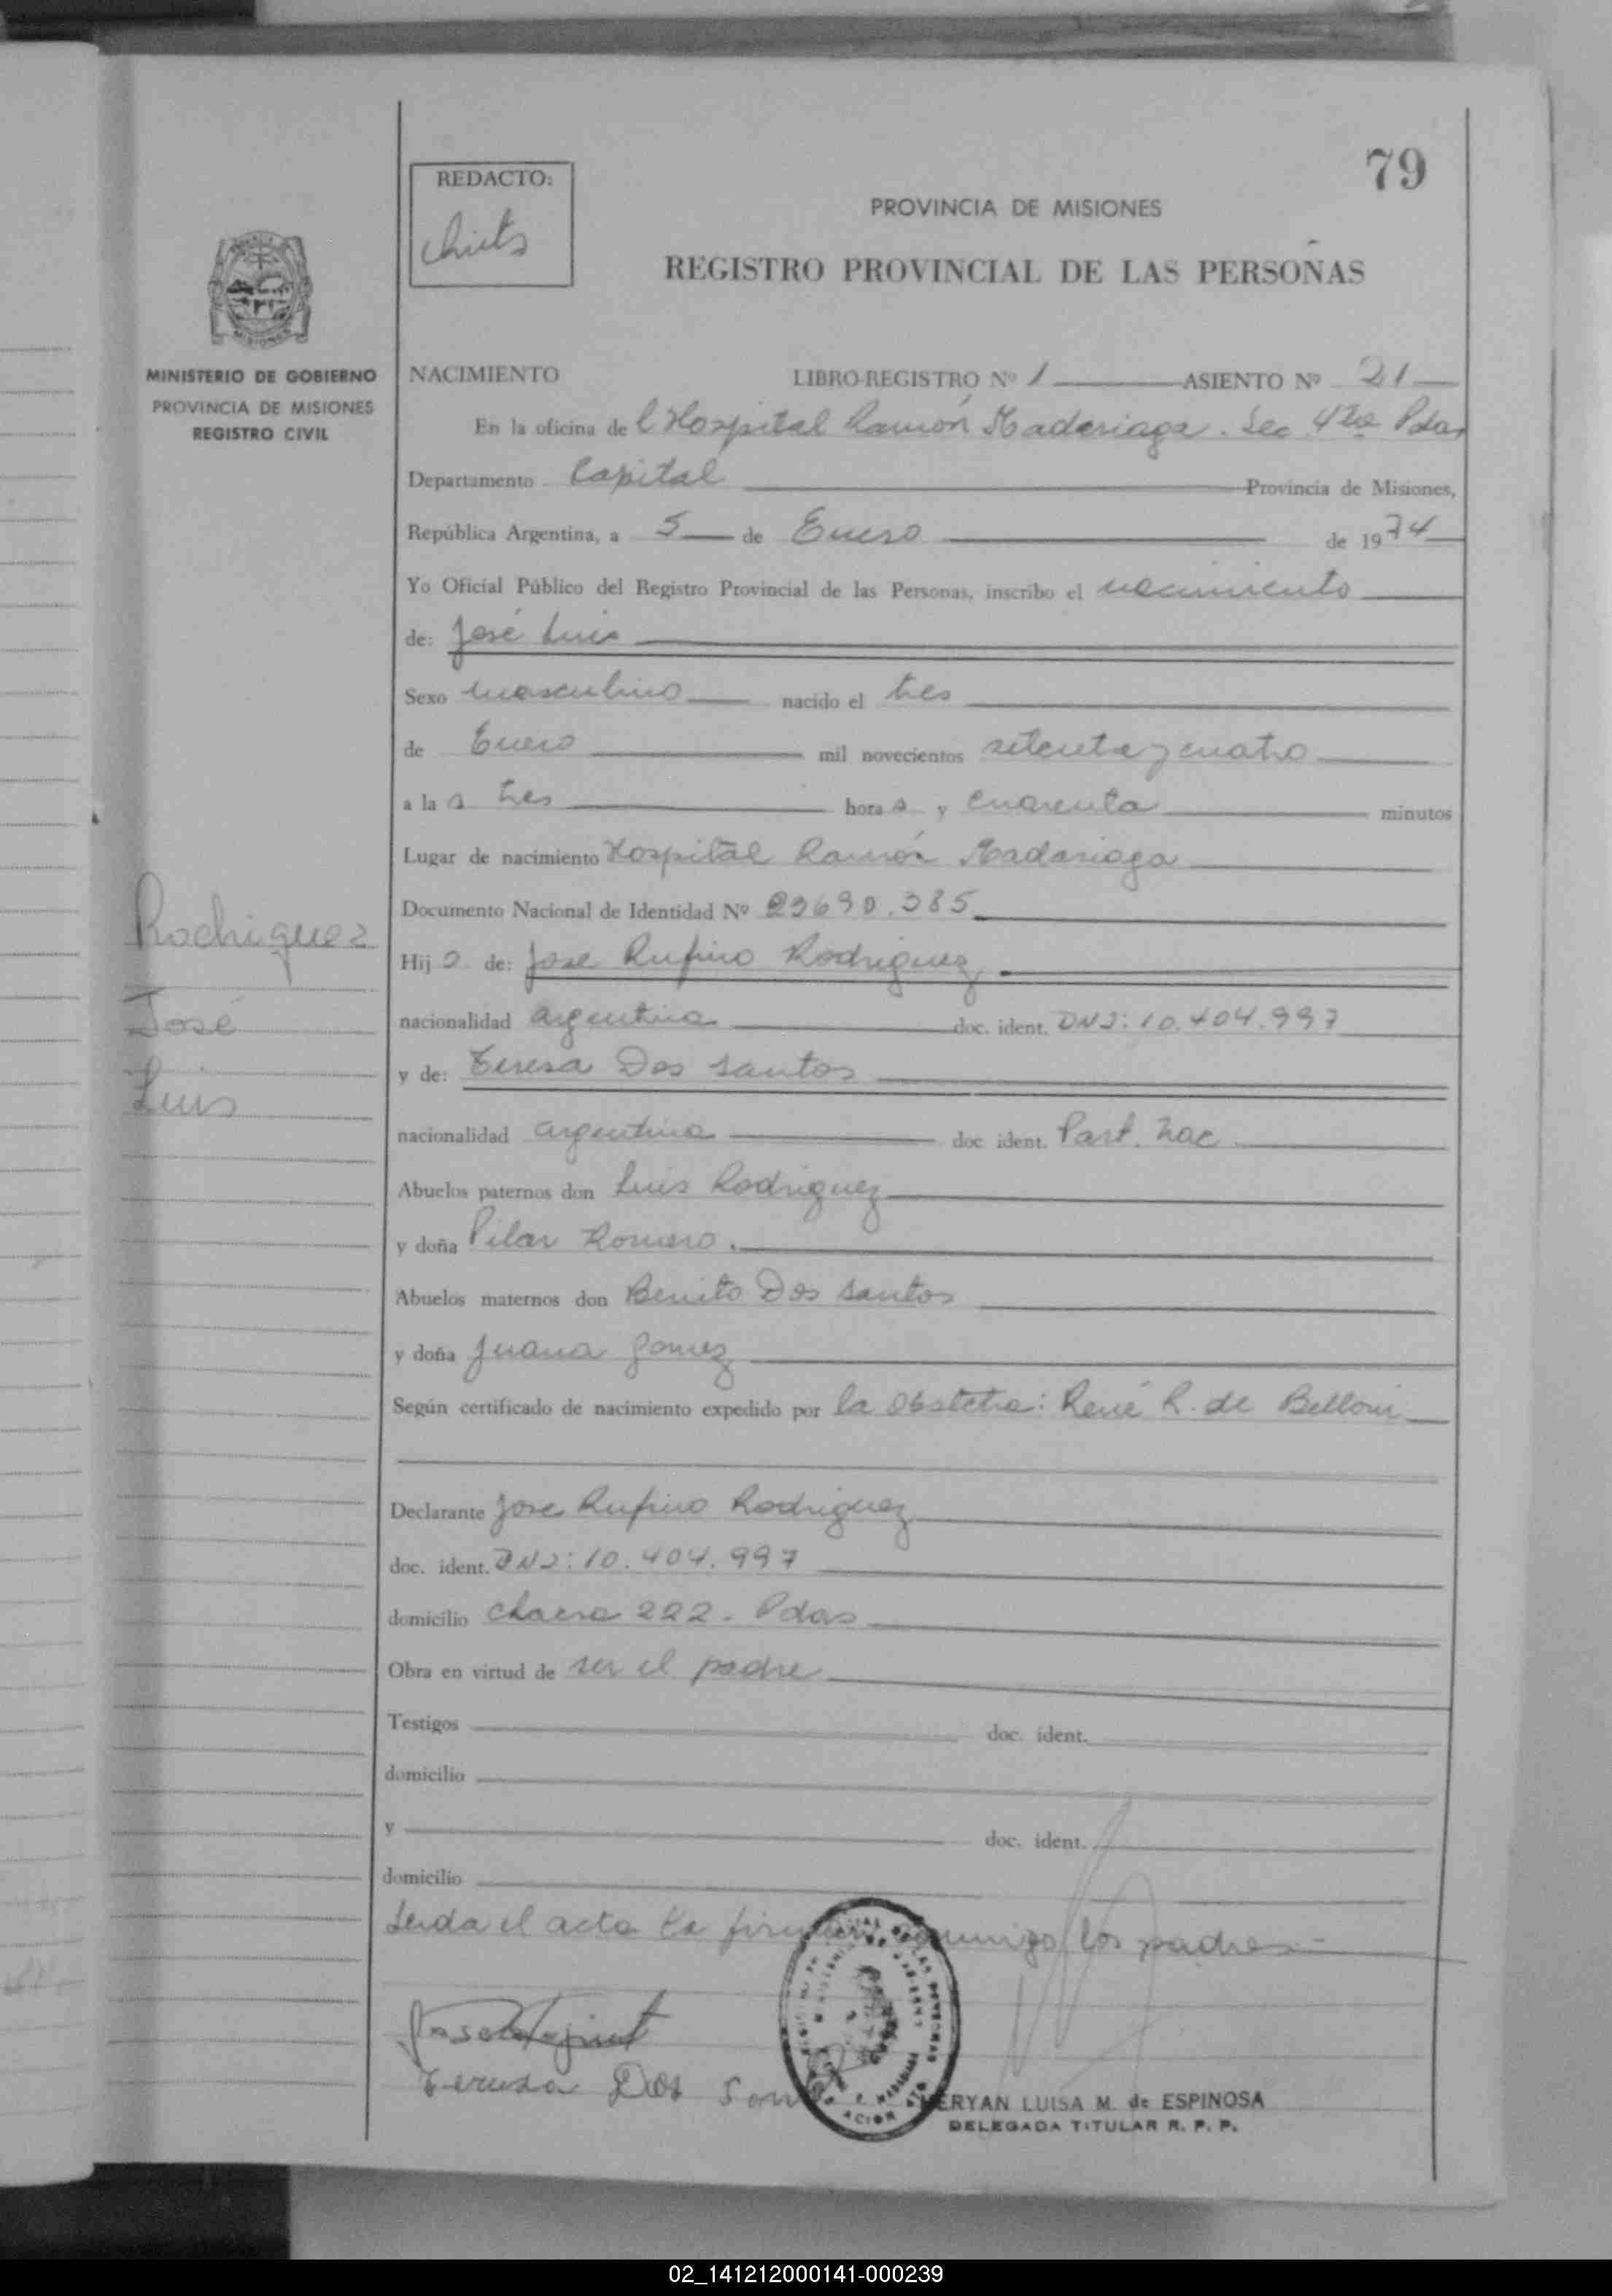 79
REDACTO:
PROVINCIA DE MISIONES
REGISTRO PROVINCIAL DE LAS PERSONAS
MINISTERIO DE GOBIERNO
PROVINCIA DE MISIONES
REGISTRO CIVIL
NACIMIENTO LIBRO-REGISTRO Nº 1 ASIENTO Nº 21
En la oficina del Hospital Ramón Madariaga. Sec 4ta Pdas
Departamento Capital Provincia de Misiones,
República Argentina, a 5 de Enero de 1974
Yo Oficial Público del Registro Provincial de las Personas, inscribo el nacimiento
de: José Luis
Sexo masculino nacido el tres
de Enero mil novecientos setenta y cuatro
a las tres horas y cuarenta minutos
Lugar de nacimiento Hospital Ramón Madariaga
Documento Nacional de Identidad Nº 23690.385
Rodriguez
Hijo de: Jose Rufino Rodriguez
nacionalidad argentina doc. ident. DNI: 10.404.997
José
y de: Teresa Dos santos
Luis
nacionalidad argentina doc ident. Part. nac
Abuelos paternos don Luis Rodriguez
y doña Pilar Romero.
Abuelos maternos don Benito Dos santos
y doña Juana Gomez
Según certificado de nacimiento expedido por la obstetra: René R. de Belloni
Declarante Jose Rufino Rodriguez
doc. ident. DNI: 10.404.997
domicilio chacra 222. Pdas
Obra en virtud de ser el padre
Testigos doc. ident.
domicilio
y doc. ident.
domicilio
Leida el acta la firman conmigo los padres
Teresa Dos San
ERYAN LUISA M. de ESPINOSA
DELEGADA TITULAR R. P. P.
02_141212000141-000239